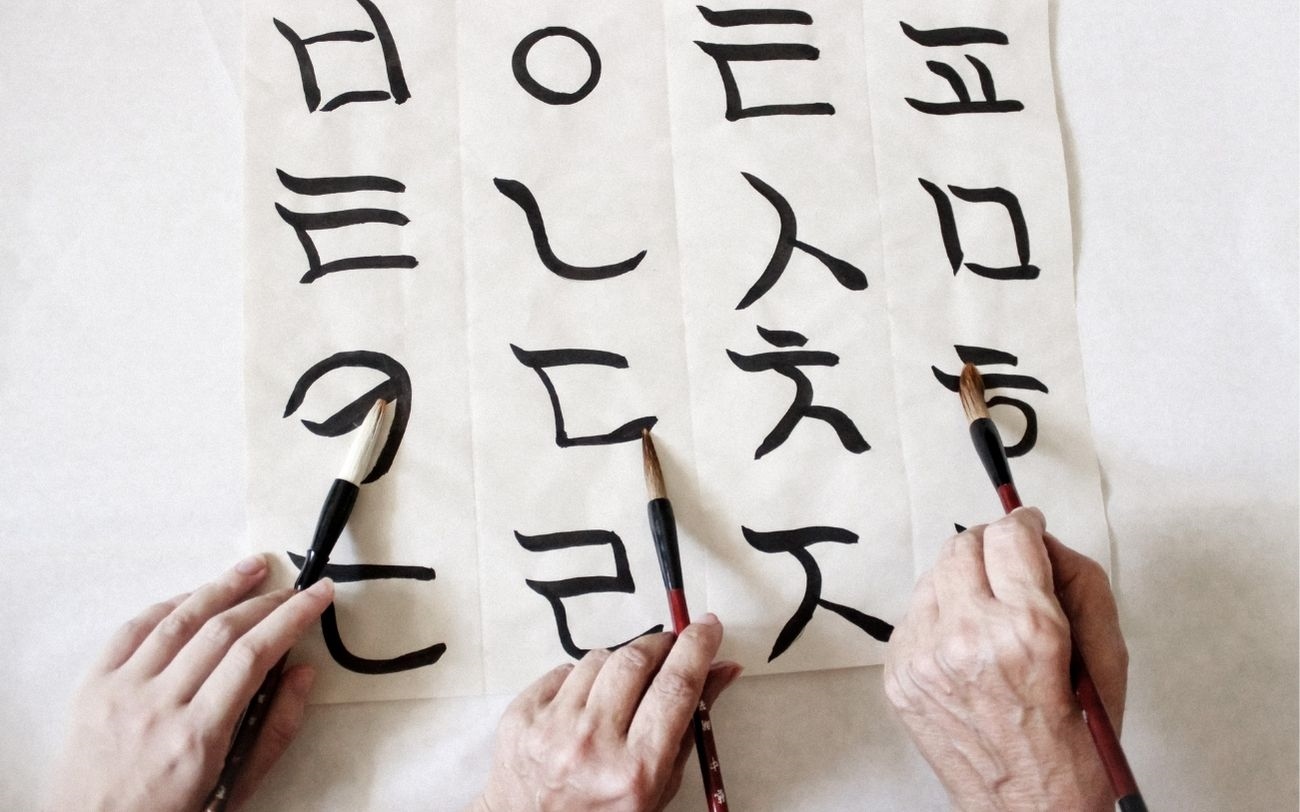 ㅂ ㅇ ㅌ ㅍ
ㅌ ㄴ ㅅ ㅁ
ㅋ ㄷ ㅊ ㅎ
ㄹ ㅈ